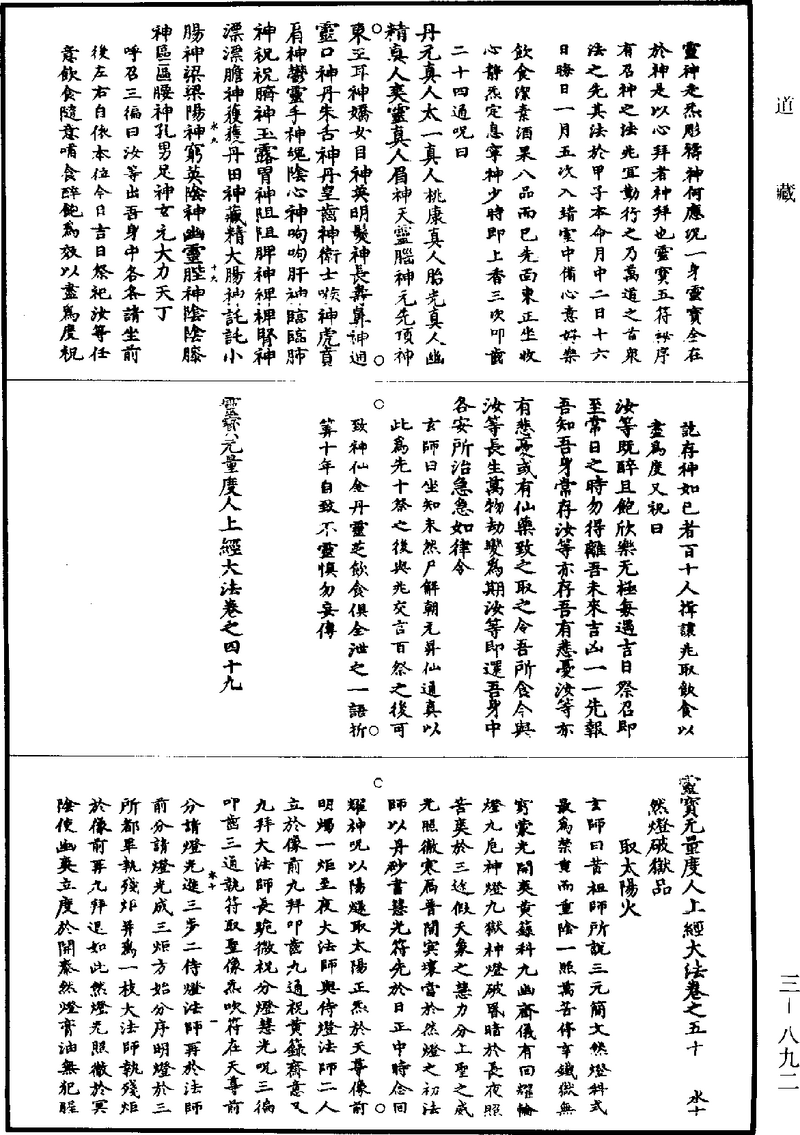 道藏
靈神走炁彫䘲神何應況一身靈寶全在
於神是以心拜者神拜也靈寶五符秘序
有召神之法先宜勤行之乃萬道之首衆
法之先其法於甲子本命月中二日十六
日晦日一月五次入靖室中備心意好樂
飲食潔素酒果八品而已先面東正坐收
心靜炁定息寧神少時即上香三吹叩齒
二十四通呪曰
丹元真人太一真人桃康真人胎光真人幽
精真人爽靈真人眉神天靈腦神元先頂神
東王耳神嬌女目神英明髮神長鼻神通
靈口神丹朱舌神丹皇齒神衛士喉神虎賁
肩神鬱靈手神魂陰心神呴呴肝神臨臨肺
神祝祝臍神玉露胃神阻阻脾神裨裨腎神
漂漂膽神獲獲丹田神藏精大腸神託託小
腸神梁梁陽神窮英陰神幽靈脛神陰陰膝
神區區腰神孔男足神女元大力天丁
呼召三徧曰汝等出吾身中各各請坐前
後左右自依本位今日吉日祭祀汝等任
意飲食隨意哺食醉飽為效以盡為度祝
水九
十六
訖存神如已者百十人揖讓先取飲食以
盡為度又祝曰
汝等既醉且飽欣樂无極每遇吉日祭召即
至常日之時勿得離吾未來吉凶一一先報
吾知吾身常存汝等亦存吾有悲憂汝等亦
有悲憂或有仙藥致之取之令吾所食今與
汝等長生萬物劫變為期汝等即還吾身中
各安所治急急如律令
玄師曰坐知未然尸解朝元昇仙通真以
此為先十祭之後與兆交言百祭之後可
致神仙金丹靈芝飲食俱全泄之一語折
筭十年自致不靈慎勿妄傳
靈寶无量度人上經大法卷之四十九
靈寶无量度人上經大法卷之五十
水十
然燈破獄品
取太陽火
玄師曰昔祖師所說三元簡文然燈科式
最為禁貴而重陰一照萬苦停辛鐵獄無
冥蒙光開爽黃籙科九幽齋儀有回耀輪
燈九巵神燈九獄神燈破昏暗於長夜照
苦爽於三途假天象之慧力分上聖之威
光照徹寒扃普開冥壤當於然燈之初法
師以丹砂書慧光符先於日正中時念回
耀神呪以陽燧取太陽正炁於天尊像前
明燭一炬至夜大法師與侍燈法師二人
立於像前九拜叩齒九通祝黃籙齋意又
九拜大法師長跪微祝分燈慧光呪三徧
叩齒三通執符取聖像炁吹符在天尊前
分請燈光進三步二侍燈法師再於法師
前分請燈光成三炬方始分序明燈於三
所都畢執殘炬幷為一枝大法師執殘炬
於像前再九拜還如此然燈光照徹於冥
陰使幽爽立度於開泰然燈膏油無犯腥
水十
一
三－八九二